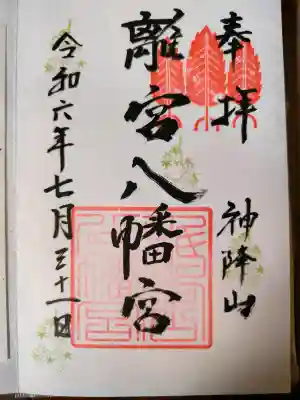 奉拝
神降山
離宮八幡宮
令和六年七月三十一日